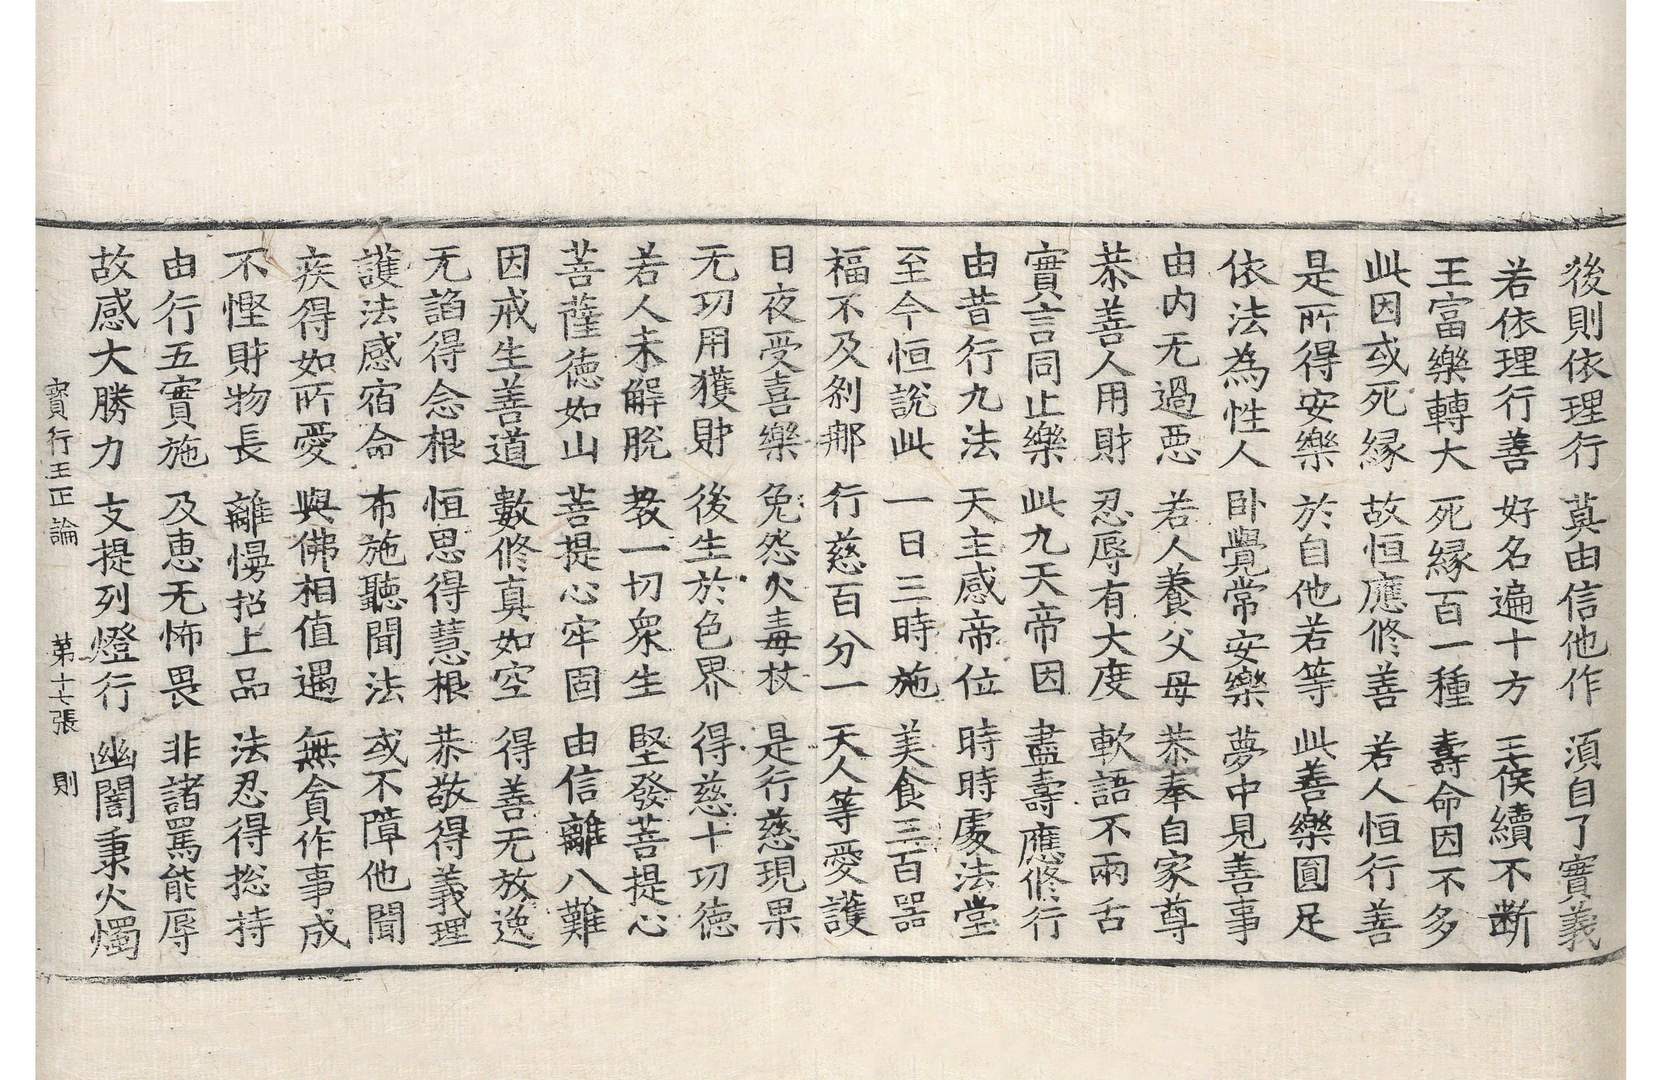 後則依理行　莫由信他作　須自了實義
若依理行善　好名遍十方　王侯續不断
王富樂轉大　死縁百一種　壽命因不多
此因或死縁　故恒應修善　若人恒行善
是所得安樂　於自他若等　此善樂圓足
依法為性人　卧覺常安樂　夢中見善事
由内无過悪　若人養父母　恭奉自家尊
恭善人用財　忍辱有大度　軟語不兩舌
實言同止樂　此九天帝因　盡壽應修行
由昔行九法　天主感帝位　時時處法堂
至今恒説此　一日三時施　美食三百器
福不及刹那　行慈百分一　天人等愛護
日夜受喜樂　免怨火毒杖　是行慈現果
无功用獲財　後生於色界　得慈十功徳
若人未解脱　教一切衆生　堅發菩提心
菩薩徳如山　菩提心牢固　由信離八難
因戒生善道　數修真如空　得善无放逸
无諂得念根　恒思得慧根　恭敬得義理
護法感宿命　布施聽聞法　或不障他聞
疾得如所愛　與佛相值遇　無貪作事成
不慳財物長　離慢招上品　法忍得捴持
由行五實施　及恵无怖畏　非諸罵能辱
故感大勝力　支提列燈行　幽闇秉火燭
寶行王正論　第十七張　則